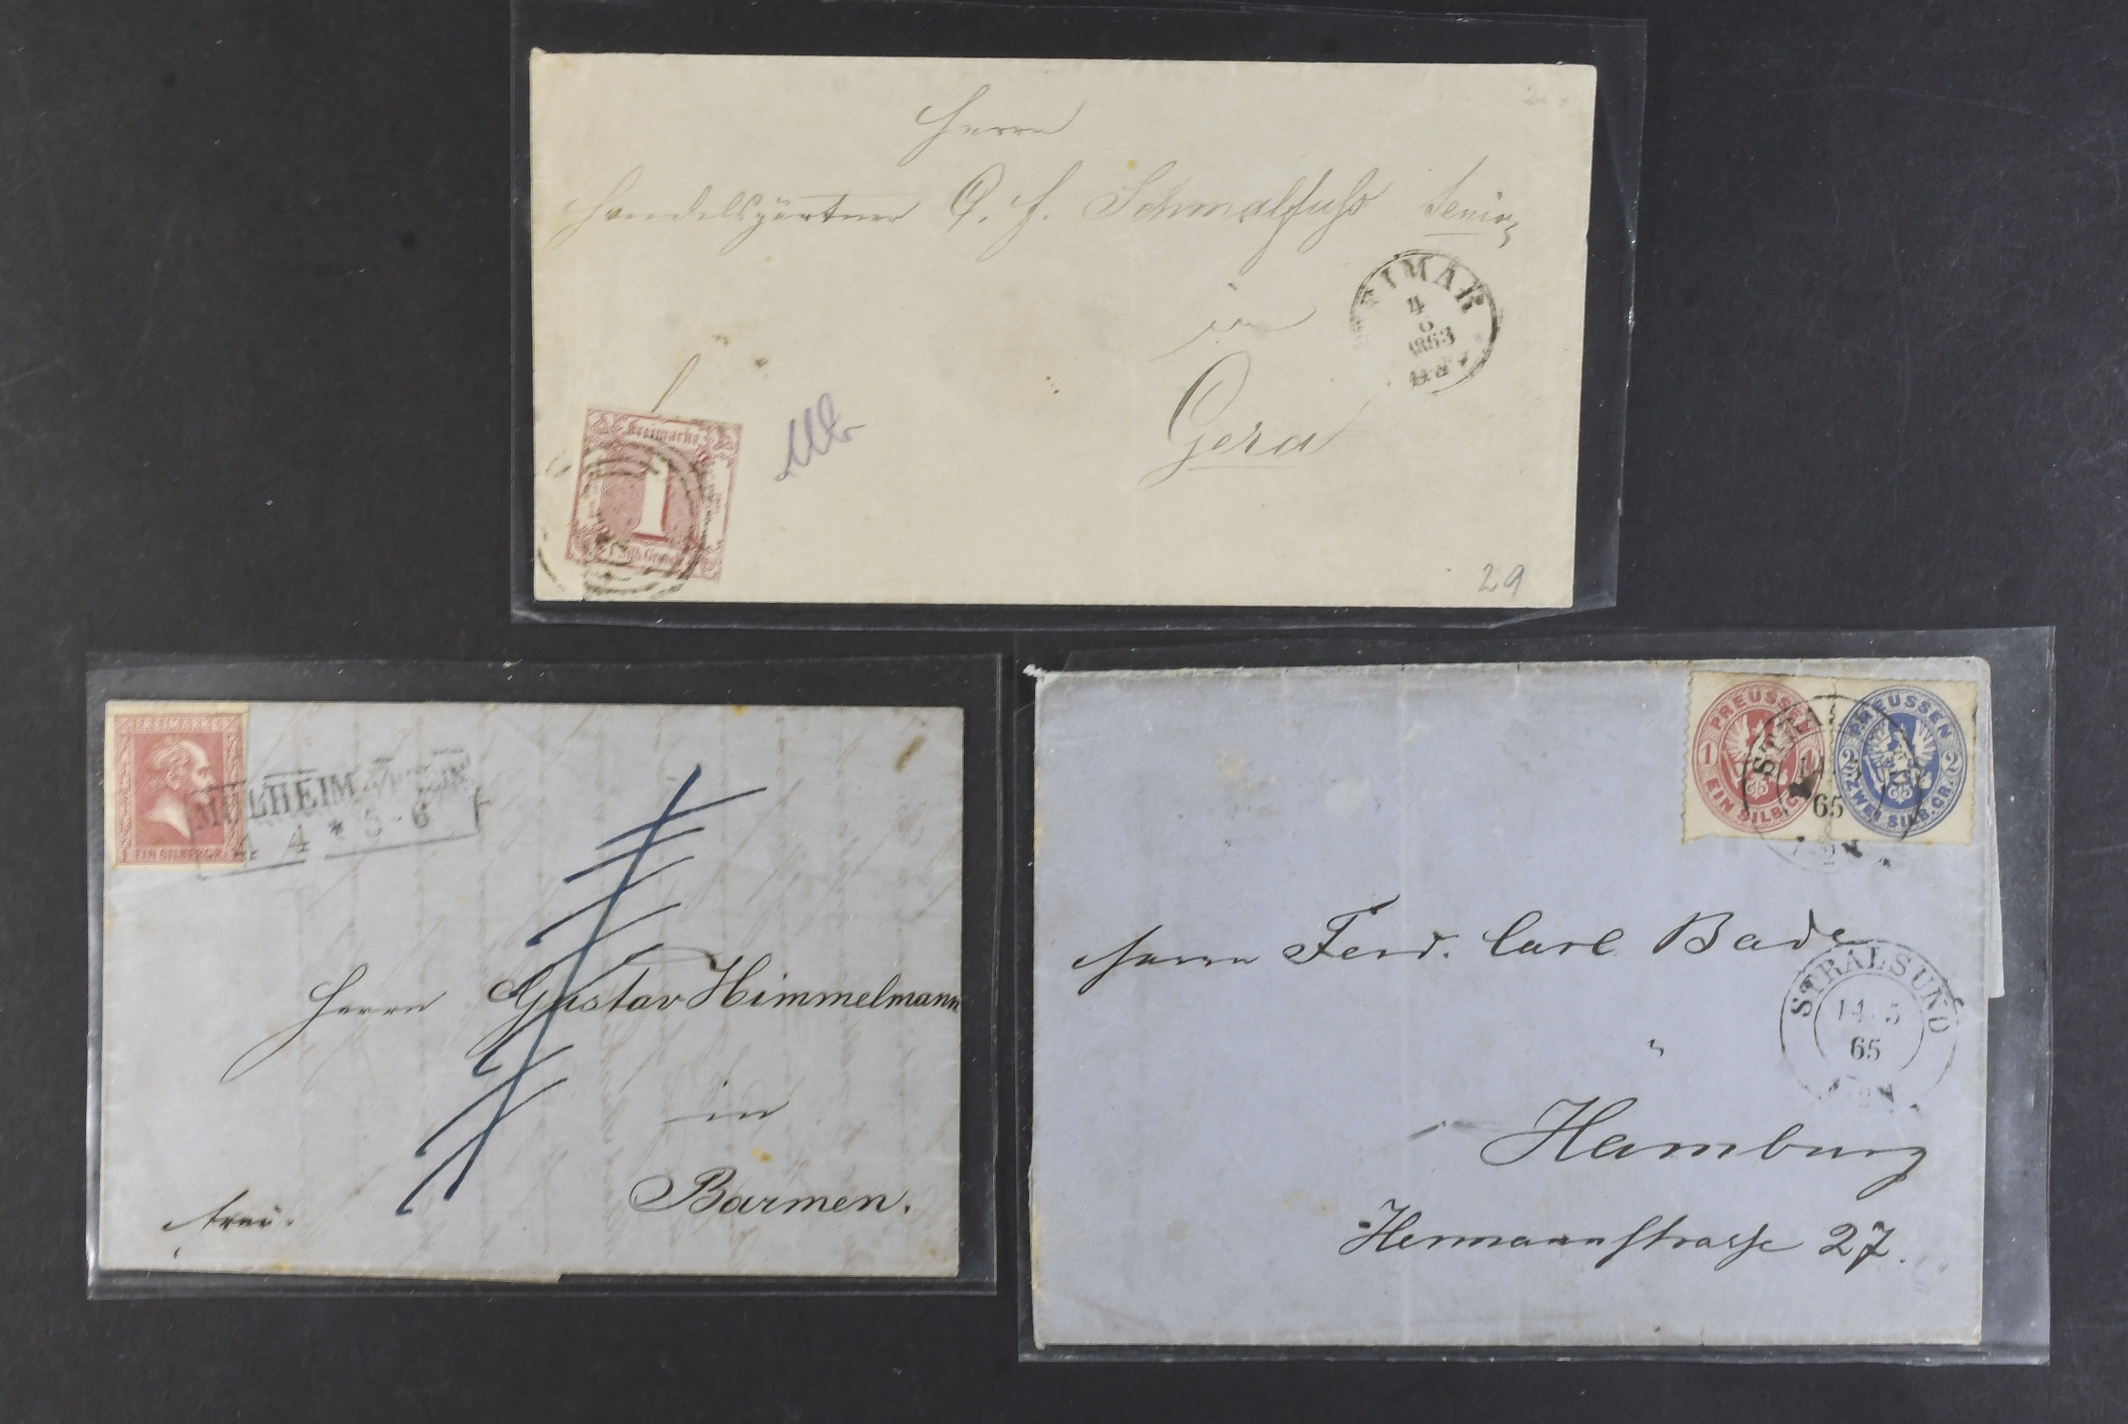 Herrn
Handelsgärtner C. F. Schmalfuß Senior
in
Gera
WEIMAR
4
6
1863
Freimarke
1
1 Silb. Grosch.
29
FREIMARKE
1 EIN SILBERGR.
MÜLHEIM A/RHEIN
4 4 * 5-6
Herrn Gustav Himmelmann
in
Barmen.
frei.
PREUSSEN
1 1
EIN SILB.GR.
PREUSSEN
2 2
ZWEI SILB.GR.
65
Herrn Ferd. Carl Bade
STRALSUND
14 5
65
Hamburg
Hermannstrasse 27.